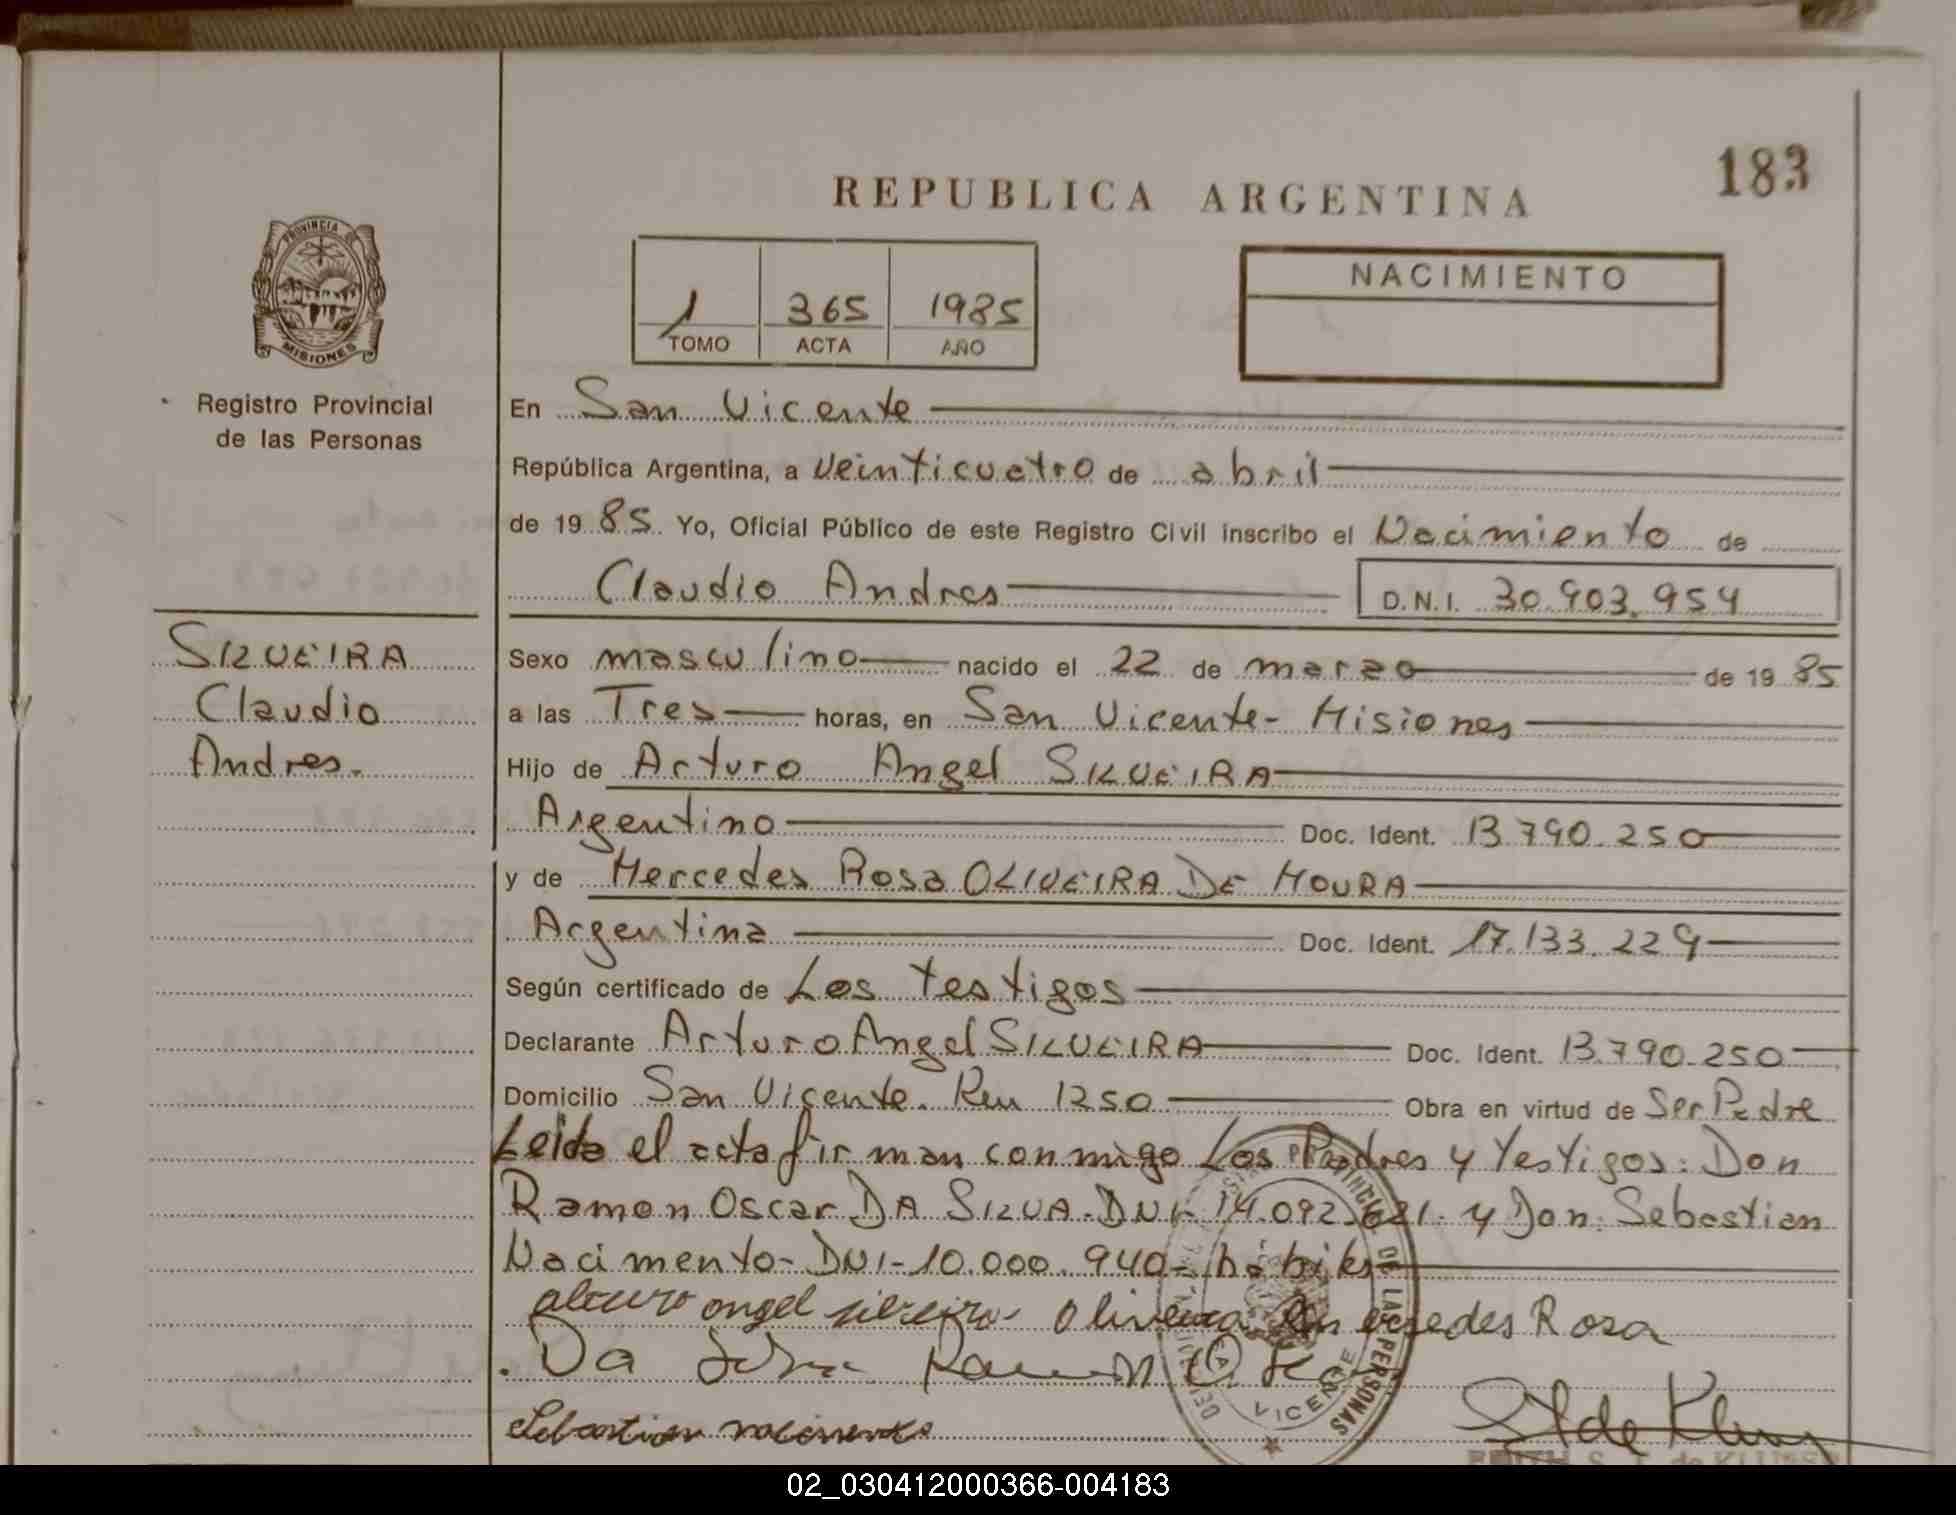 183
REPUBLICA ARGENTINA
PROVINCIA DE
MISIONES
Registro Provincial
de las Personas
1 365 1985
TOMO ACTA AÑO
NACIMIENTO
En San Vicente
República Argentina, a veinticuatro de abril
de 1985. Yo, Oficial Público de este Registro Civil inscribo el Nacimiento de
Claudio Andres D.N.I. 30.903.954
SILVEIRA
Claudio
Andres.
Sexo masculino nacido el 22 de marzo de 1985
a las Tres horas, en San Vicente - Misiones
Hijo de Arturo Angel SILVEIRA
Argentino Doc. Ident. 13.790.250
y de Mercedes Rosa OLIVEIRA DE MOURA
Argentina Doc. Ident. 17.133.229
Según certificado de Los testigos
Declarante Arturo Angel SILVEIRA Doc. Ident. 13.790.250
Domicilio San Vicente. Km 1250 Obra en virtud de Ser Padre
Leida el acta firman conmigo Los Padres y Testigos: Don
Ramon Oscar DA SILVA - DNI - 14.092.621. y Don: Sebastian
Nacimento - DNI - 10.000.940 - hábiles
arturo angel silveira Oliveira Mercedes Rosa
Da Silva Ramon
Sebastian nacimento
02_030412000366-004183